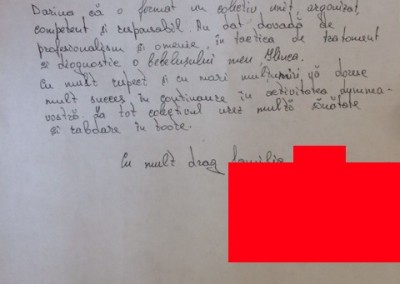 Darina că a format un colectiv unit, organizat,
competent și responsabil. Au dat dovadă de
profesionalism și omenie, în tactica de tratament
și diagnostic a bebelușului meu,
Cu mult respect și cu mari mulțumiri, vă doresc
mult succes în continuare în activitatea dumnea-
voastră, la tot colectivul urez multă sănătate
și răbdare în toate.
Cu mult drag familia